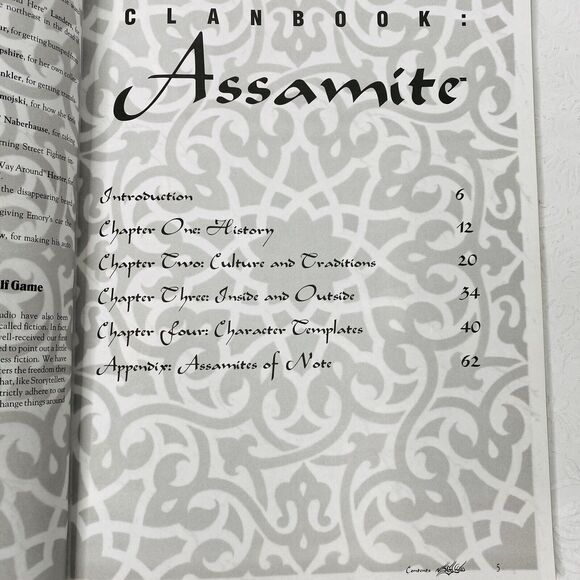 Here" Landers, for
northeast in the dead
for getting bumped from
for her own collec
for getting
for how the
Naberhause, for taking
rning Street Fighter
Way Around" Hester, for
the disappearing beard
giving Emory's car the
for making his auto
lf Game
udio have also been
called fiction. In fact,
well-received our first
d to point out a little
ess fiction. We have
ters the freedom they
hat, like Storytellers,
trictly adhere to our
change things around
CLANBOOK:
Assamite™
Introduction 6
Chapter One: History 12
Chapter Two: Culture and Traditions 20
Chapter Three: Inside and Outside 34
Chapter Four: Character Templates 40
Appendix: Assamites of Note 62
Contents 5